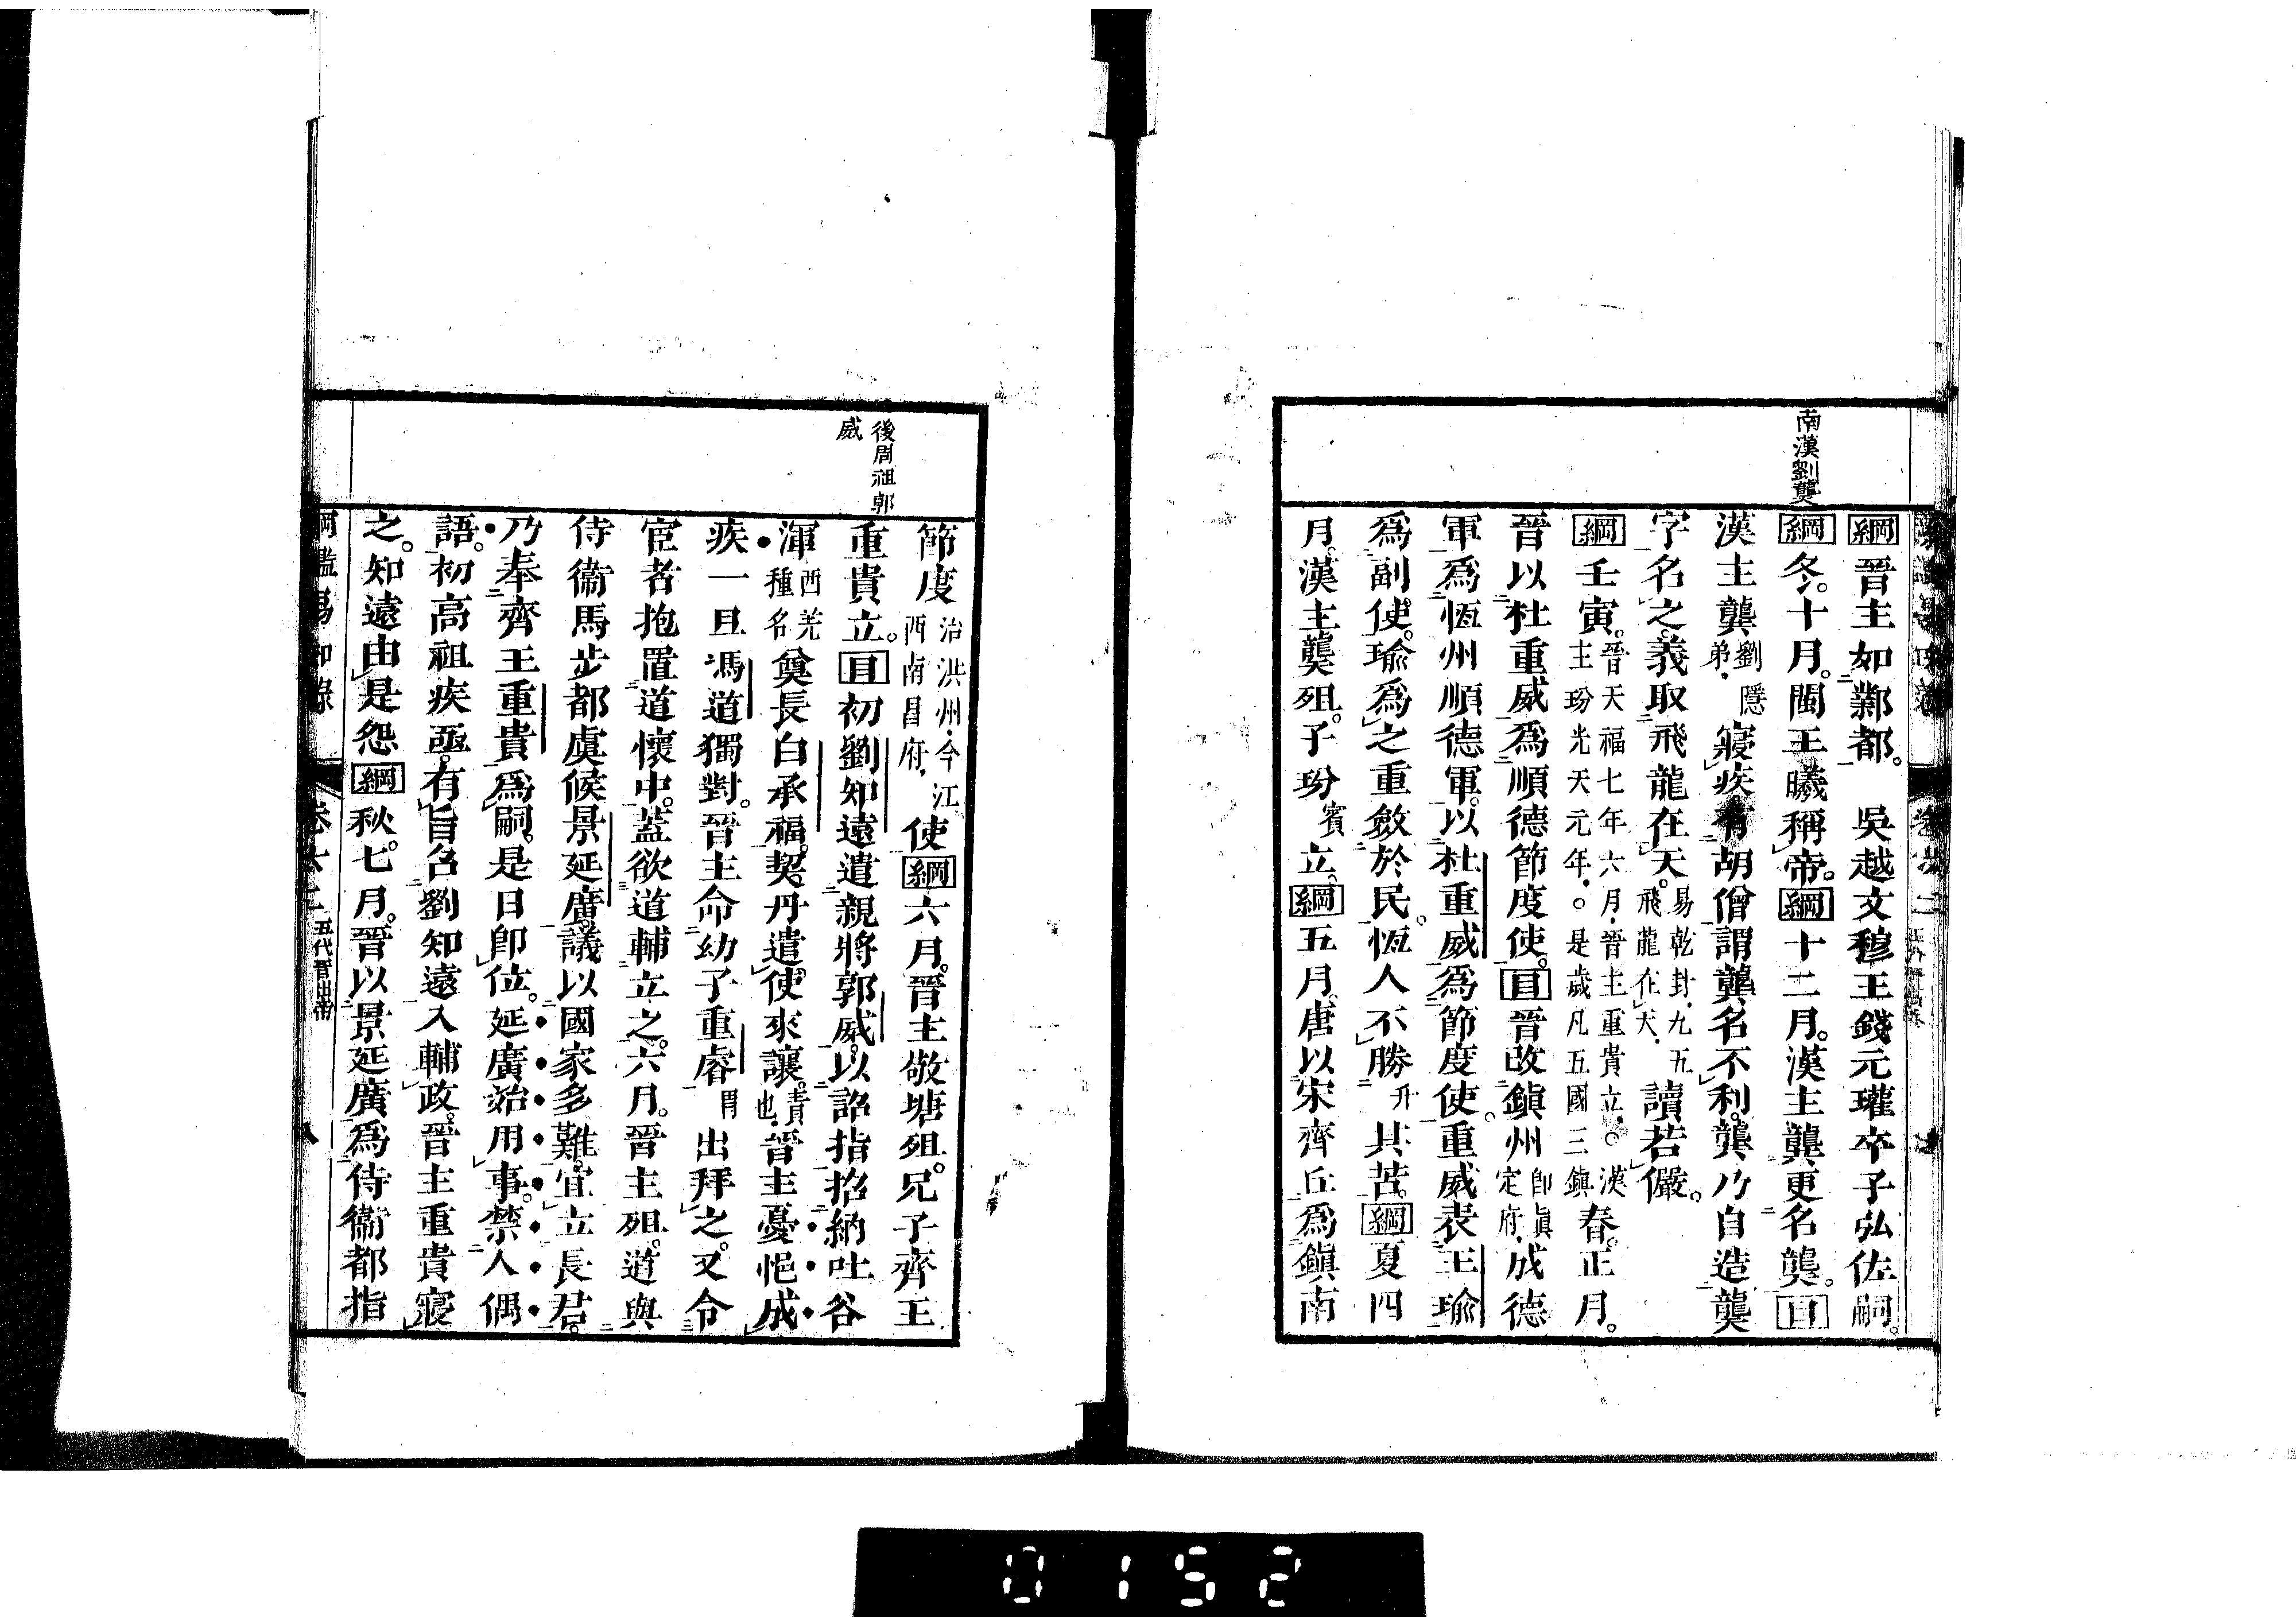 南漢劉龑
綱晉主如鄴都。　吳越文穆王錢元瓘卒子弘佐嗣。
綱冬。十月。閩王曦稱帝。綱十二月。漢主龔更名龑。目
漢主龔劉隱弟．寢疾有胡僧謂龔名不利。龔乃自造龑
字名之。義取飛龍在天。易乾封．九五飛龍在天．讀若儼。
綱壬寅。晉天福七年六月．晉主重貴立．○漢主玢光天元年．○是歲凡五國三鎮春。正月。
晉以杜重威爲順德節度使。目晉改鎭州卽眞定府．成德
軍爲恆州順德軍。以杜重威爲節度使。重威表王瑜
爲副使。瑜爲之重斂於民。恆人不勝升其苦。綱夏四
月。漢主龑殂。子玢賓立。綱五月。唐以宋齊丘爲鎭南
後周祖郭
威
節度治洪州．今江西南昌府．使綱六月。晉主敬塘殂。兄子齊王
重貴立。目初劉知遠遣親將郭威。以詔指招納吐谷
渾西羌種名奠長白承福。契丹遣使來讓。責也．晉主憂悒成
疾一旦馮道獨對。晉主命幼子重睿胃出拜之。又令
宦者抱置道懷中。蓋欲道輔立之。六月。晉主殂。道與
侍衞馬步都虞候景延廣。議以國家多難。宜立長君。
乃奉齊王重貴爲嗣。是日卽位。延廣始用事。禁人偶
語。初高祖疾亟。有旨召劉知遠入輔政。晉主重貴寢
之。知遠由是怨綱秋。七月。晉以景延廣爲侍衞都指
綱鑑易知錄　卷六十　五代晉出帝　八
0152